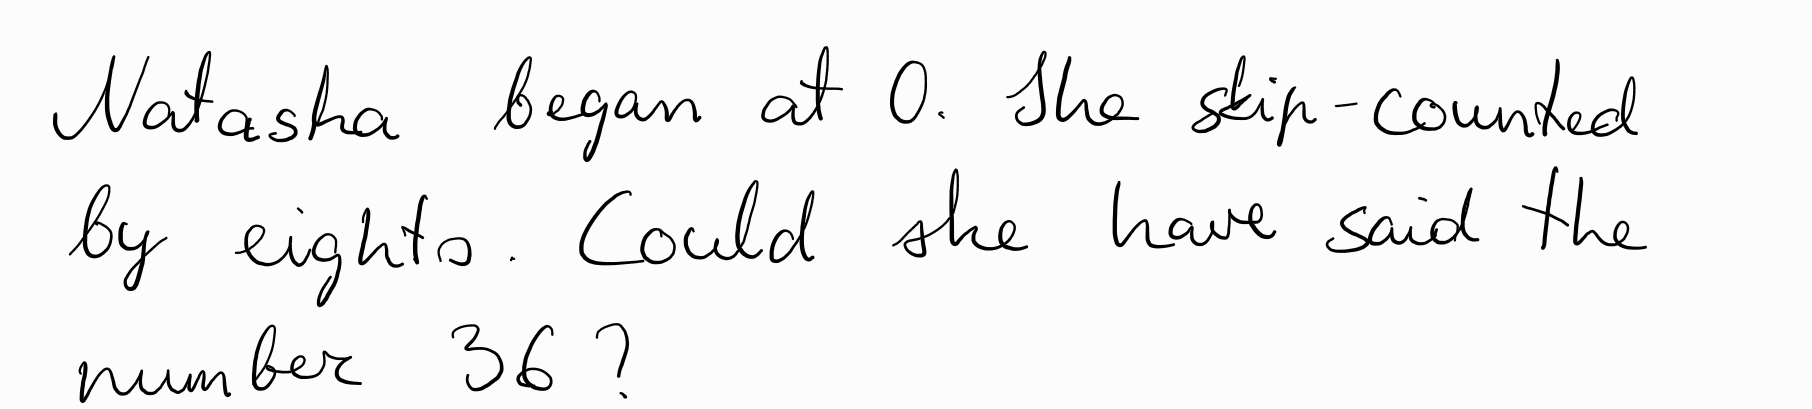 Natasha began at 0. She skip-counted
by eights. Could she have said the
number 36?